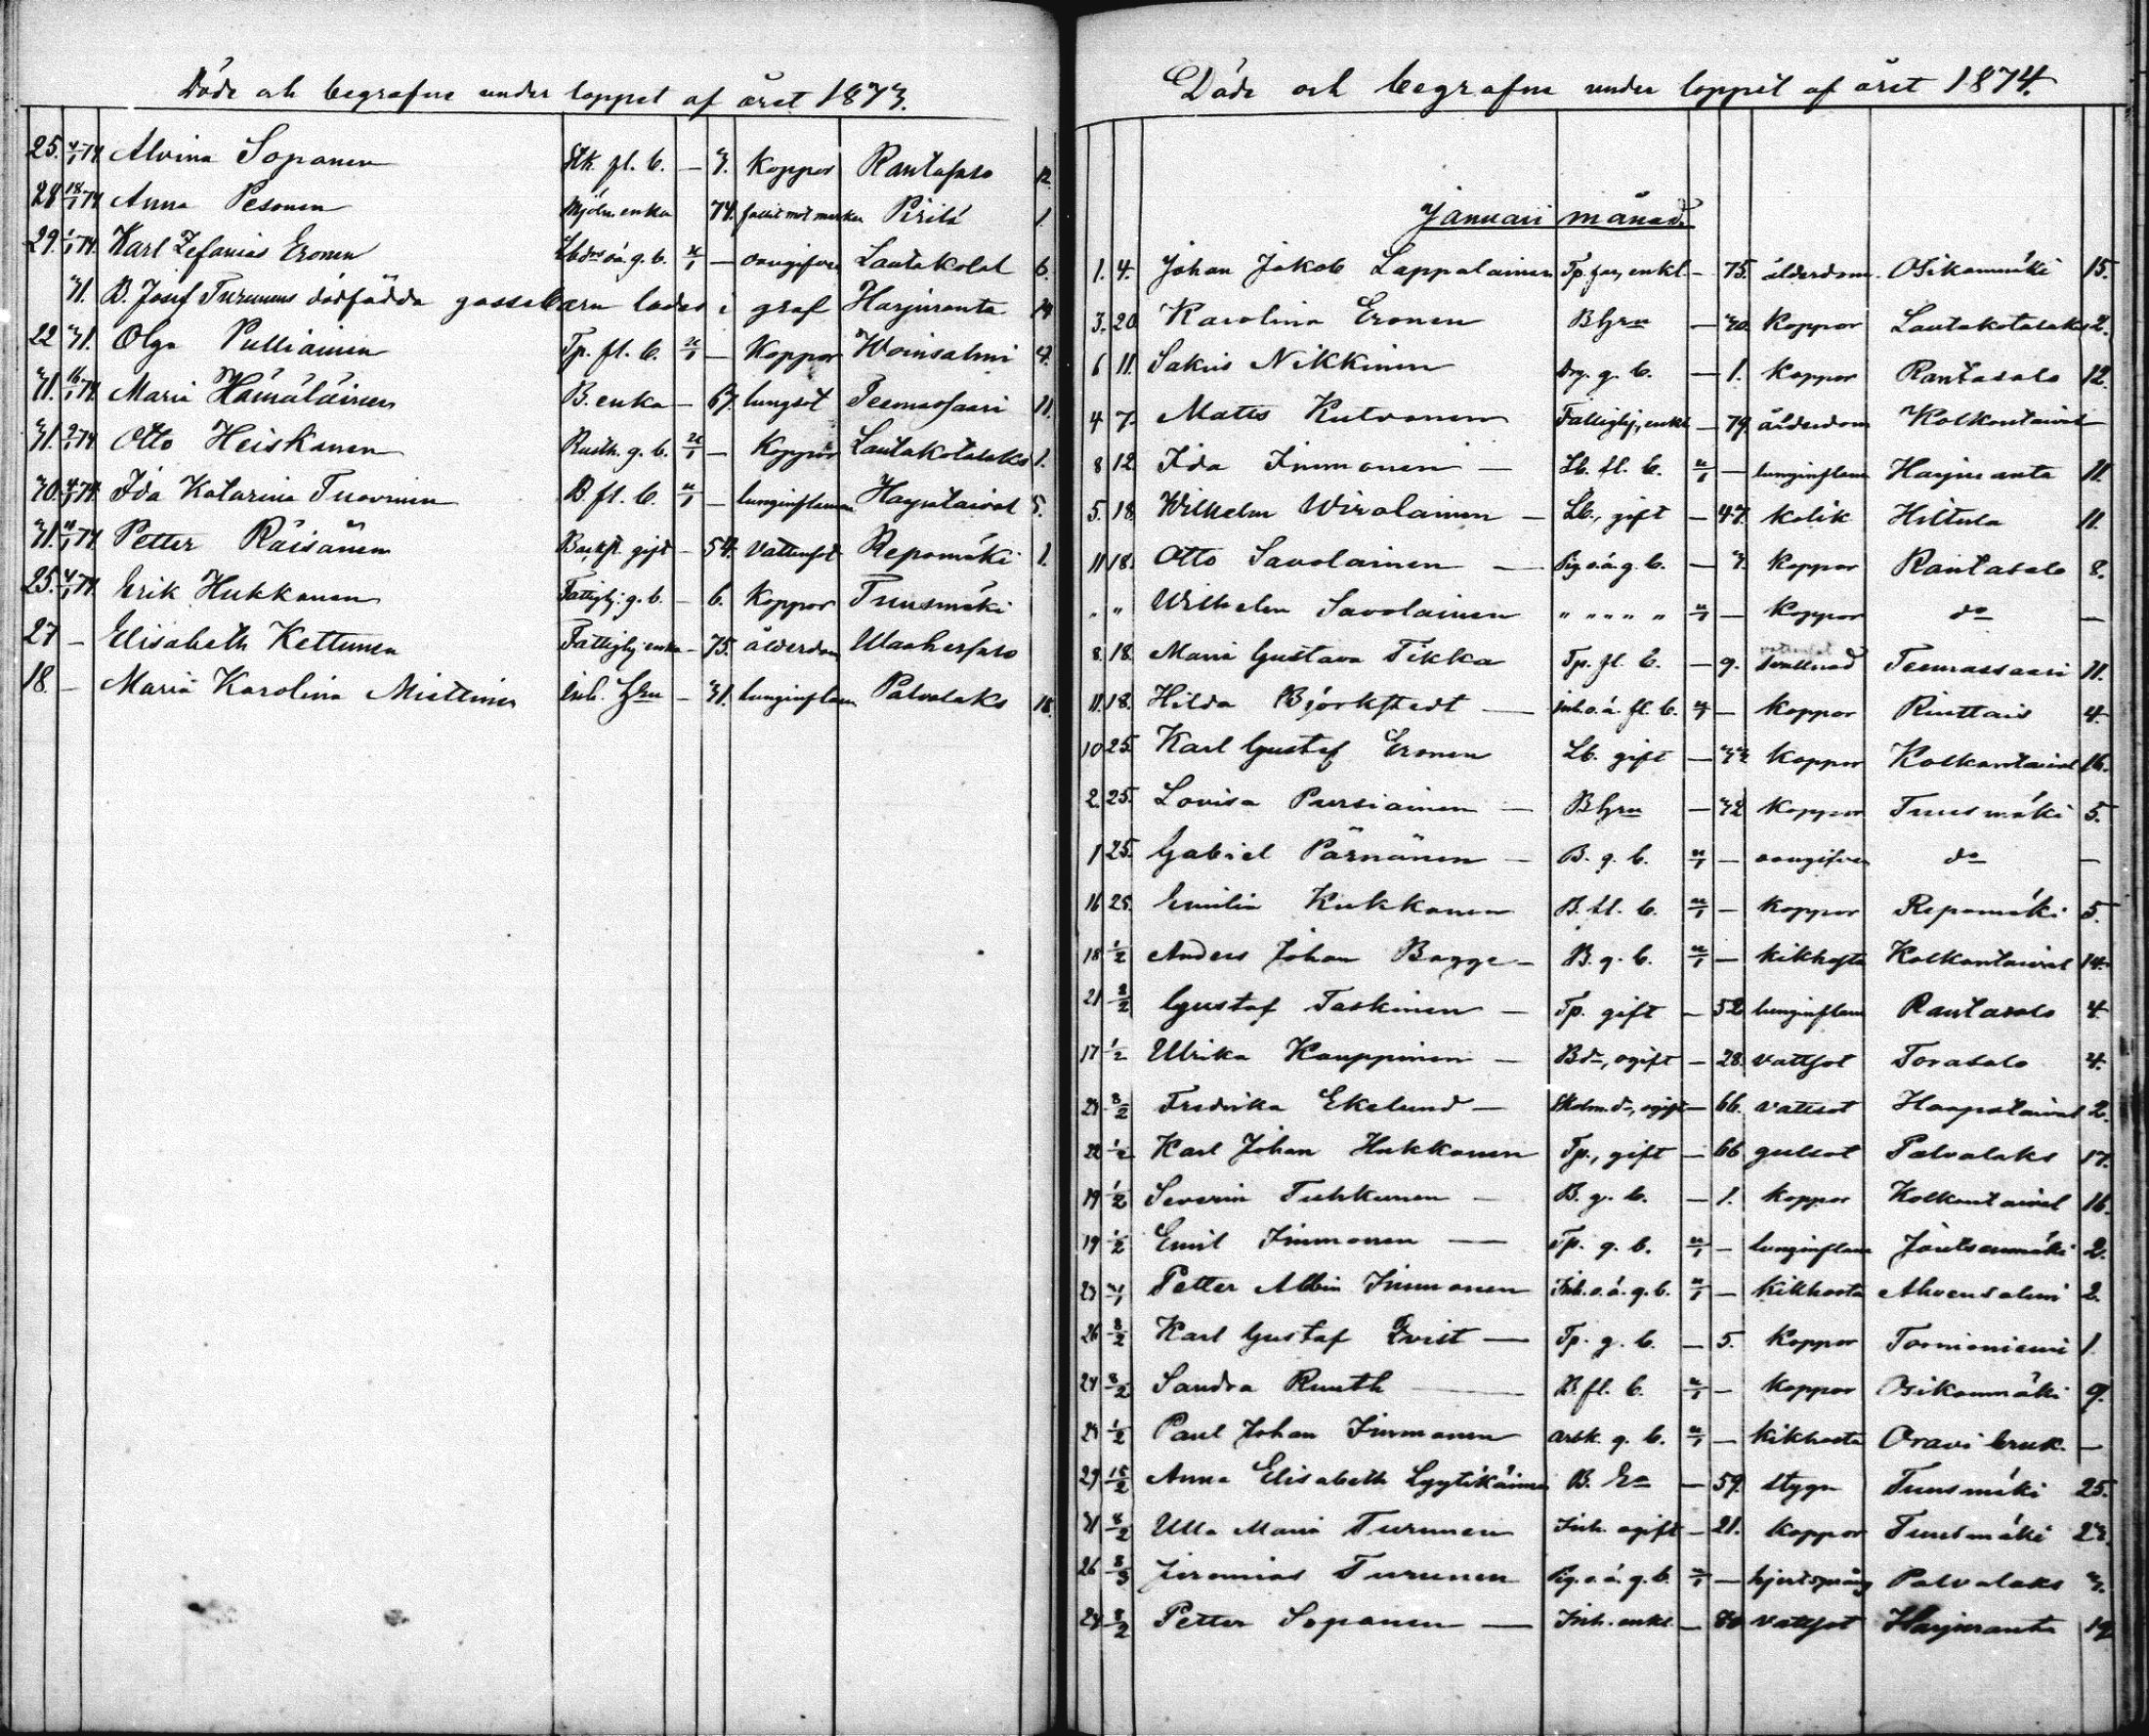 Döde och begrafne under loppet af året 1873.
25. 4/1 74 Alvina Sopanen Stk. fl. b. — 3. Koppor Rantasalo 12.
28 18/1 74 Anna Pesonen Mjöln. enka 74. Pirilä 1.
29. 1/1 74. Karl Zefanias Eronen g. b. u/1 — oangifven Lautakotal 6.
31. B. Josef Turunens dödfödda gossebarn lades i graf Harjuranta 14
22 31. Olga Pulliainen Tp. fl. b. u/1 — Koppor Woinsalmi 7.
31. 16/1 74 Maria Hämäläinen B. enka — 67. lungsot Teemassaari 11.
31. 2/1 74 Otto Heiskanen Rusth. g. b. u/1 — Koppor Lautakotalaks 1.
30. 4/1 74 Ida Katarina Tuovinen B. fl. b. u/1 — lunginflamm Haapataival 5.
31. 11/1 74 Petter Räisänen Backst. gift — 54. Vattusot Repomäki 1.
25. 4/1 74 Erik Hukkanen Fattighj. g. b. — 6. Koppor Tuusmäki
27 — Elisabeth Kettunen Fattighj. enka — 75. ålderdom Waahersalo
18 — Maria Karolina Miettinen Inh. hru — 31. lunginflam Palvalaks 18.
Döde och begrafne under loppet af året 1874.
Januari månad.
1. 4. Johan Jakob Lappalainen Tp. far, enkl. — 75. ålderdom. Osikonmäki 15.
3. 20. Karolina Eronen B hru — 30. Koppor Lautakotalaks 2.
6 11. Sakris Nikkinen Drg. g. b. — 1. Koppor Rantasalo 12.
4 7. Matts Kutvonen Fattighj., enkl — 79. ålderdom Kolkontaival
8 12. Ida Immonen — Lb. fl. b. u/1 — lunginflam Harjuranta 11.
5. 18. Wilhelm Wirolainen — Lb., gift — 47. Kolik Hiltula 11.
11 18. Otto Savolainen — Pig. o. ä. g. b. — 3. Koppor Rantasalo 8.
" " Wilhelm Savolainen " " " " " u/1 — Koppor do —
8. 18. Maria Gustava Tikka Tp. fl. b. — 9. svullnad Teemassaari 11.
11. 18. Hilda Björkstedt — inh. o. ä. fl. b. u/1 — Koppor Ruttais 4.
10 25. Karl Gustaf Eronen Lb. gift — 33 Koppor Kolkontaival 16.
2. 25. Lovisa Pursiainen — B hru — 32 Koppor Tuusmäki 5.
1 25. Gabriel Pärnänen — B. g. b. u/1 — oangifven do —
16 25. Emilia Kukkonen B. fl. b. u/1 — Koppor Repomäki 5.
18 1/2 Anders Johan Bagge — B. g. b. u/1 — Kikhosta Kolkontaival 14.
21 8/2 Gustaf Taskinen — Tp. gift — 52 lunginflam Rantasalo 4.
17 1/2 Ulrika Kauppinen — B dr, ogift — 28. Vattsot Torasalo 4.
24 8/2 Fredrika Ekelund — ogift — 66. Vattsot Haapataival 2.
22 1/2 Karl Johan Hukkanen Tp., gift — 66 gulsot Palvalaks 17.
19 1/2 Severin Tuhkunen — B. g. b. — 1. Koppor Kolkontaival 16.
19 1/2 Emil Immonen — Tp. g. b. u/1 — lunginflam Joutsenmäki 2.
23 Petter Albin Immonen Inh. o. ä. g. b. u/1 — Kikhosta Ahvensalmi 2.
26 8/2 Karl Gustaf Qvist — Tp. g. b. — 5. Koppor Tornioniemi 1
24 8/2 Sandra Ruuth — B. fl. b. u/1 — Koppor Osikonmäki 9.
24 1/2 Paul Johan Immonen arbk. g. b. u/1 — Kikhosta Oravi bruk —
29 15/2 Anna Elisabeth Lyytikäinen B. Ea — 59. Stygn Tuusmäki 25.
31 8/2 Ulla Maria Turunen Inh. ogift — 21. Koppor Tuusmäki 23.
26 8/3 Jeremias Turunen Pig. o. ä. g. b. u/1 — hjertsprång Palvalaks 3.
24 8/2 Petter Sopanen — Inh. enkl. — 80 Vattsot Harjuranta 19